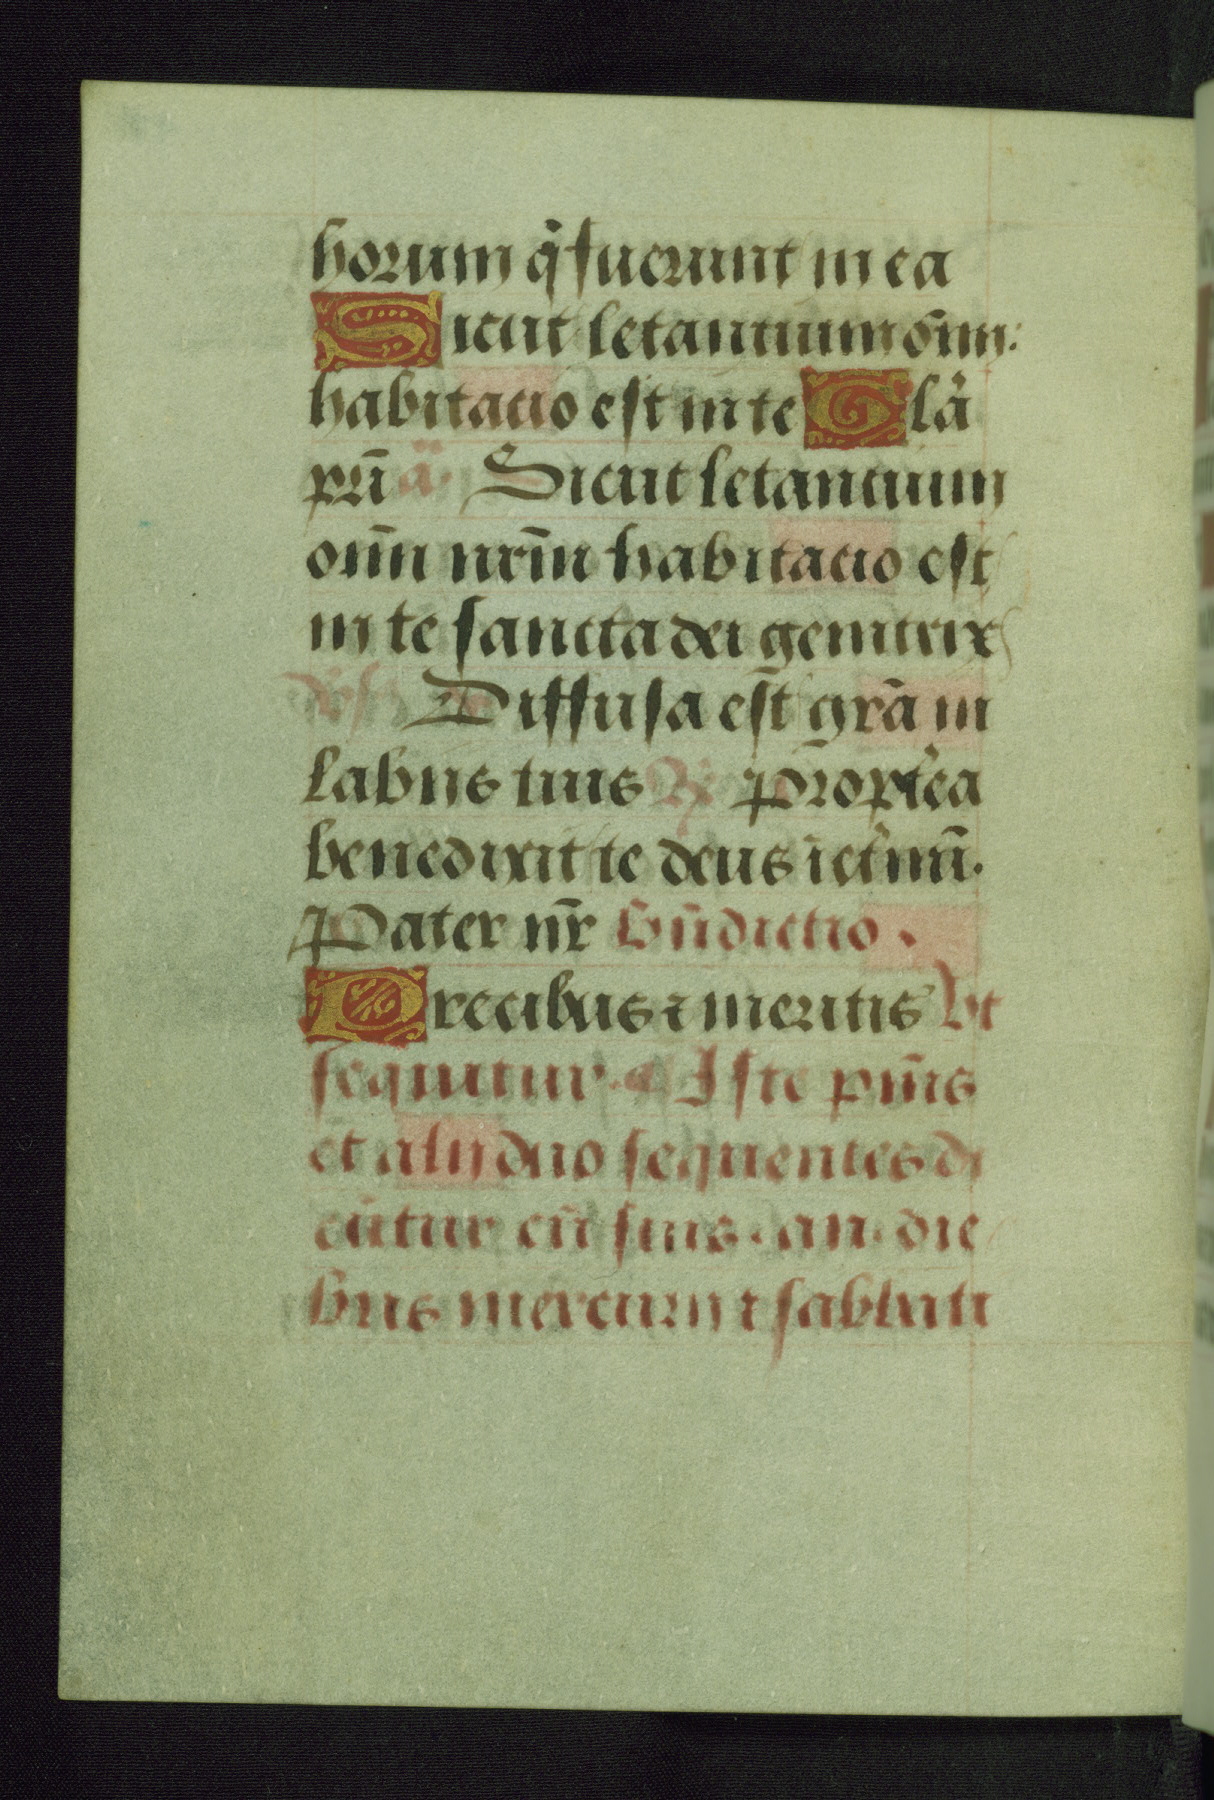 horum q̄ fuerunt in ea
Sicut letantium om̄m:
habitatio est in te Glā
prī ā. Sicut letantium
om̄ nrm̄ habitatio est
in te sancta dei genitrix
Vs. Diffusa est grā in
labiis tuis ℟ Propt̉ea
benedixit te deus ī et̉nū.
Pater nr̄ Bn̄dictio.
Precibus ⁊ meritis Vt
sequitur. Iste pm̄s
et alij duo sequentes di
cūtur cū suis. an. die
bus mercurij ⁊ sabbati